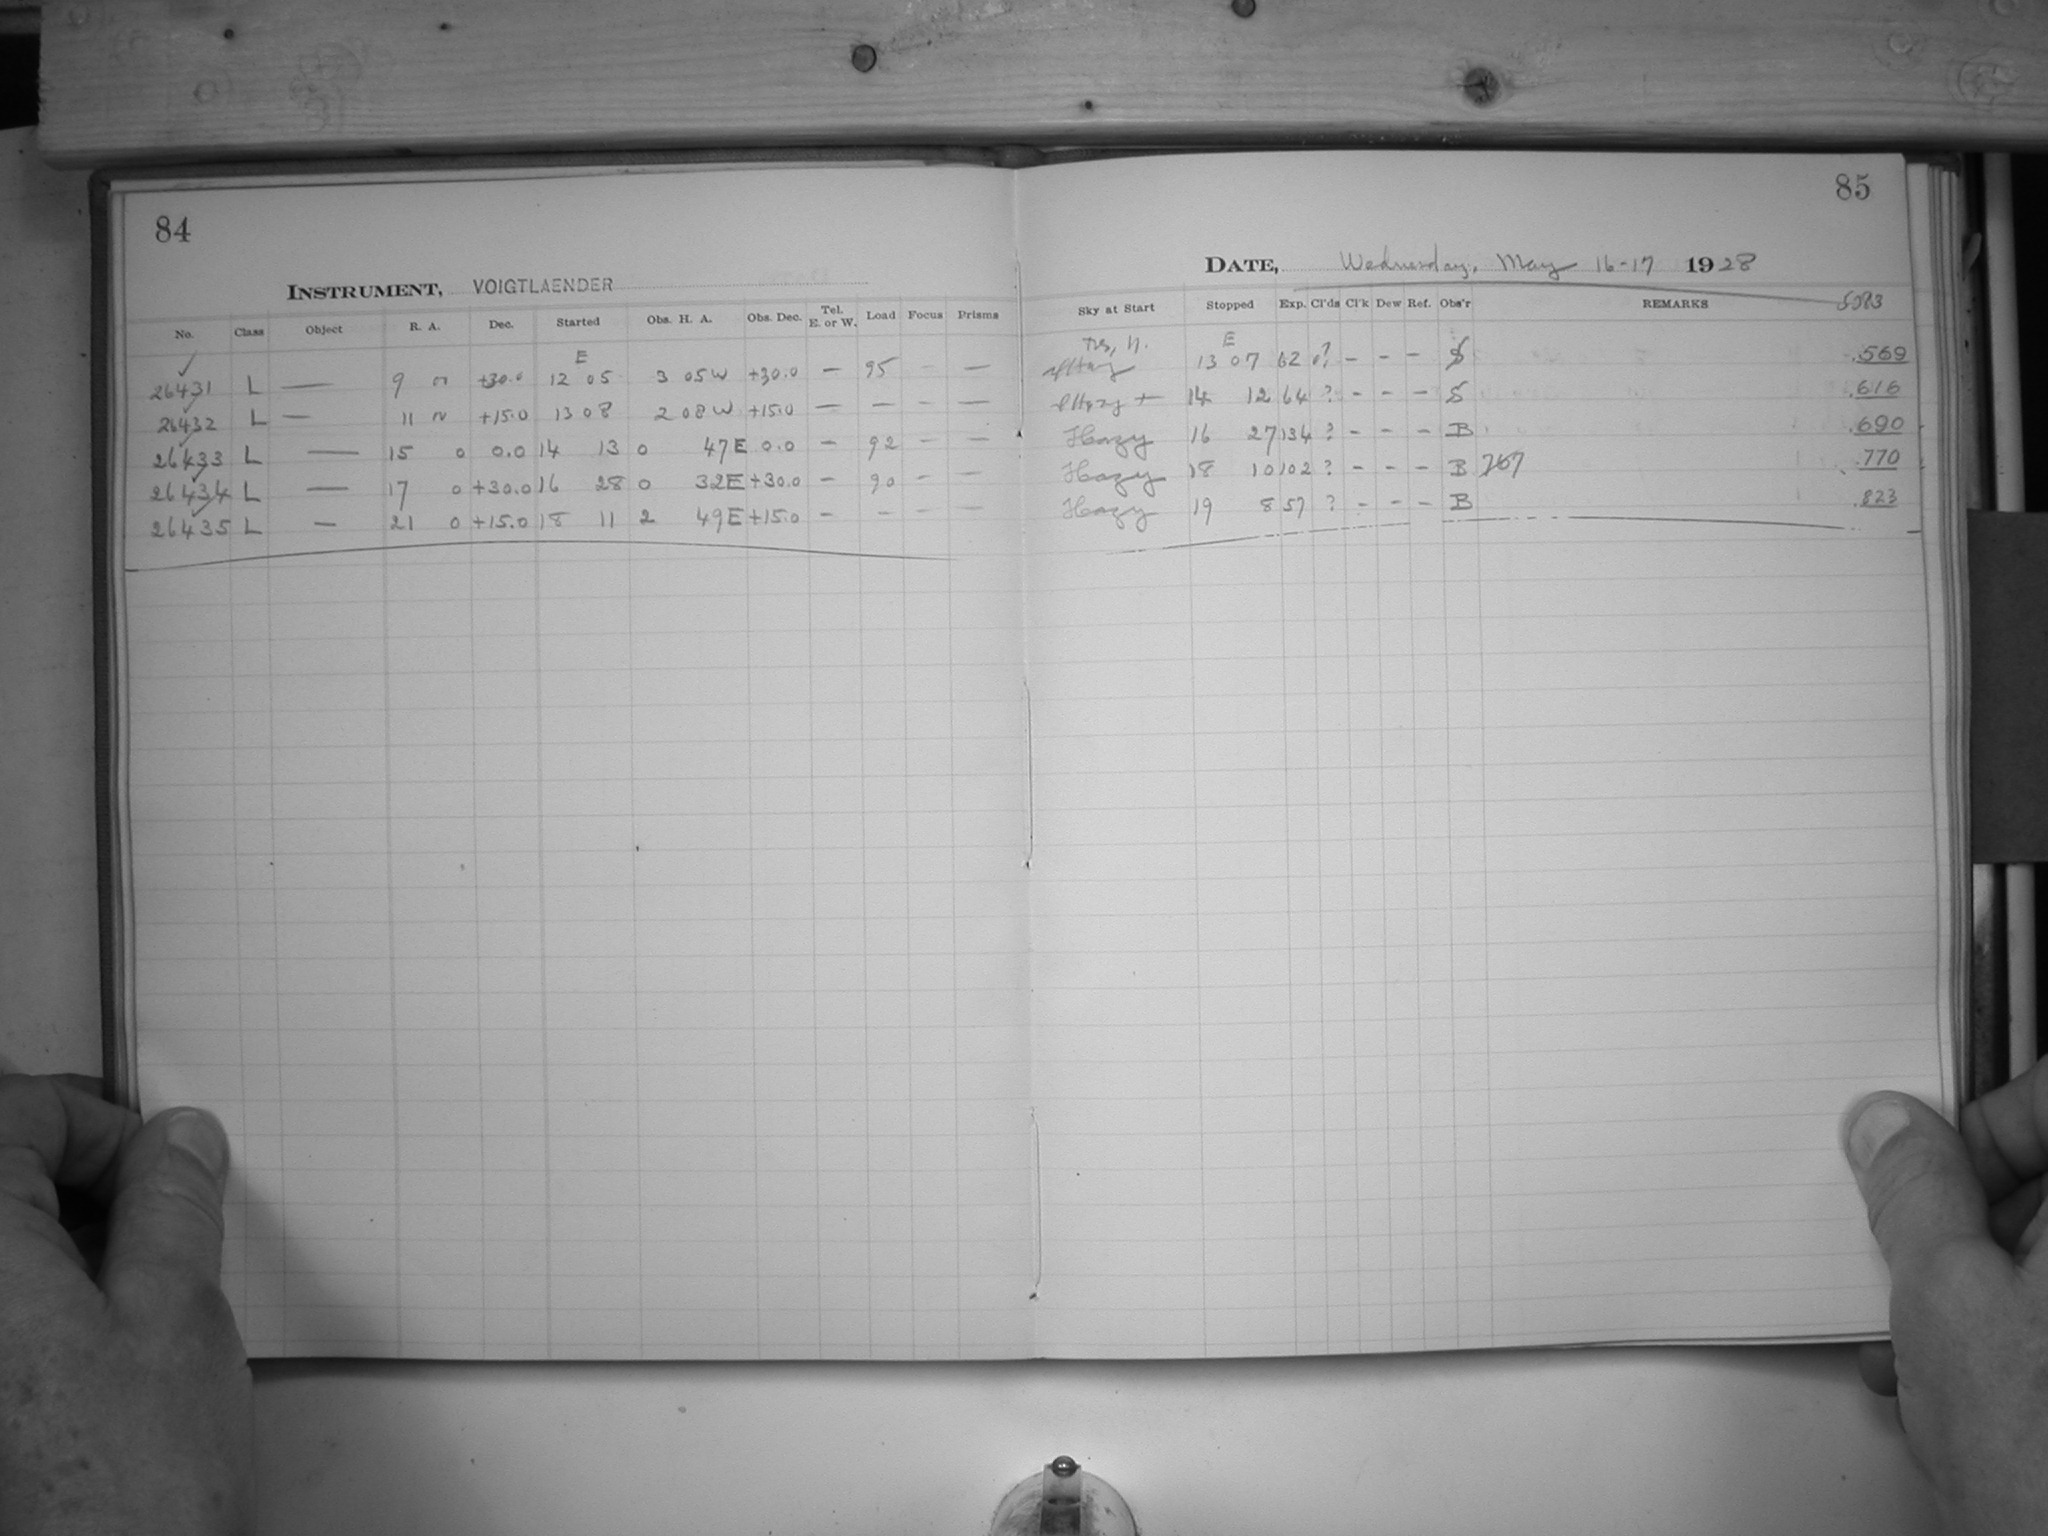 84
INSTRUMENT, VOIGTLAENDER
No. Class Object R. A. Dec. Started Obs. H. A. Obs. Dec. Tel. E. or W. Load Focus Prisms
E
26431 L — 9 +30.0 12 05 3 05 W +30.0 — 95 – —
26432 L — 11 +15.0 13 08 2 08 W +15.0 — — – —
26433 L — 15 0 0.0 14 13 0 47 E 0.0 – 92 – —
26434 L — 17 0 +30.0 16 28 0 32 E +30.0 – 90 – —
26435 L — 21 0 +15.0 18 11 2 49 E +15.0 – – – —
85
DATE, Wednesday, May 16-17 1928
Sky at Start Stopped Exp. Cl'ds Cl'k Dew Ref. Obs'r REMARKS
E
13 07 62 ? – – – S .569
14 12 64 ? – – – S .616
Hazy 16 27 134 ? – – – B .690
Hazy 18 10 102 ? – – – B 767 .770
Hazy 19 8 57 ? – – – B .823